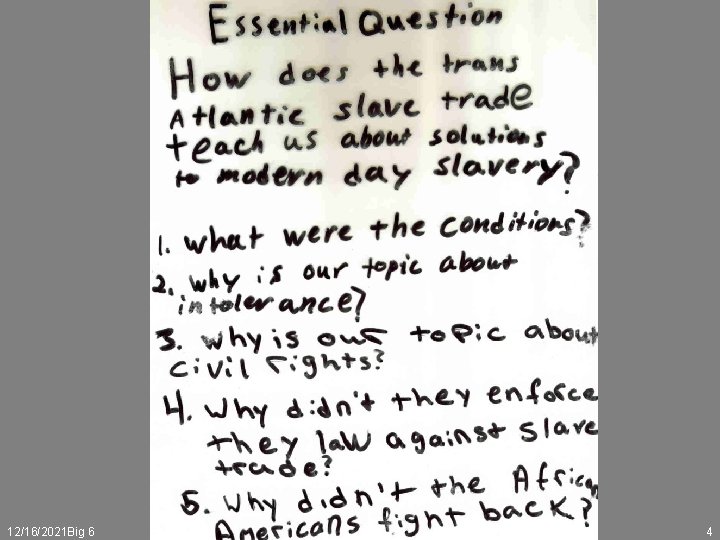 Essential Question
How does the trans
Atlantic slave trade
teach us about solutions
to modern day slavery?
1. what were the conditions?
2. why is our topic about
intolerance?
3. why is our topic about
civil rights?
4. Why didn't they enforce
they law against slave
trade?
5. Why didn't the African
Americans fight back?
12/16/2021Big 6
4